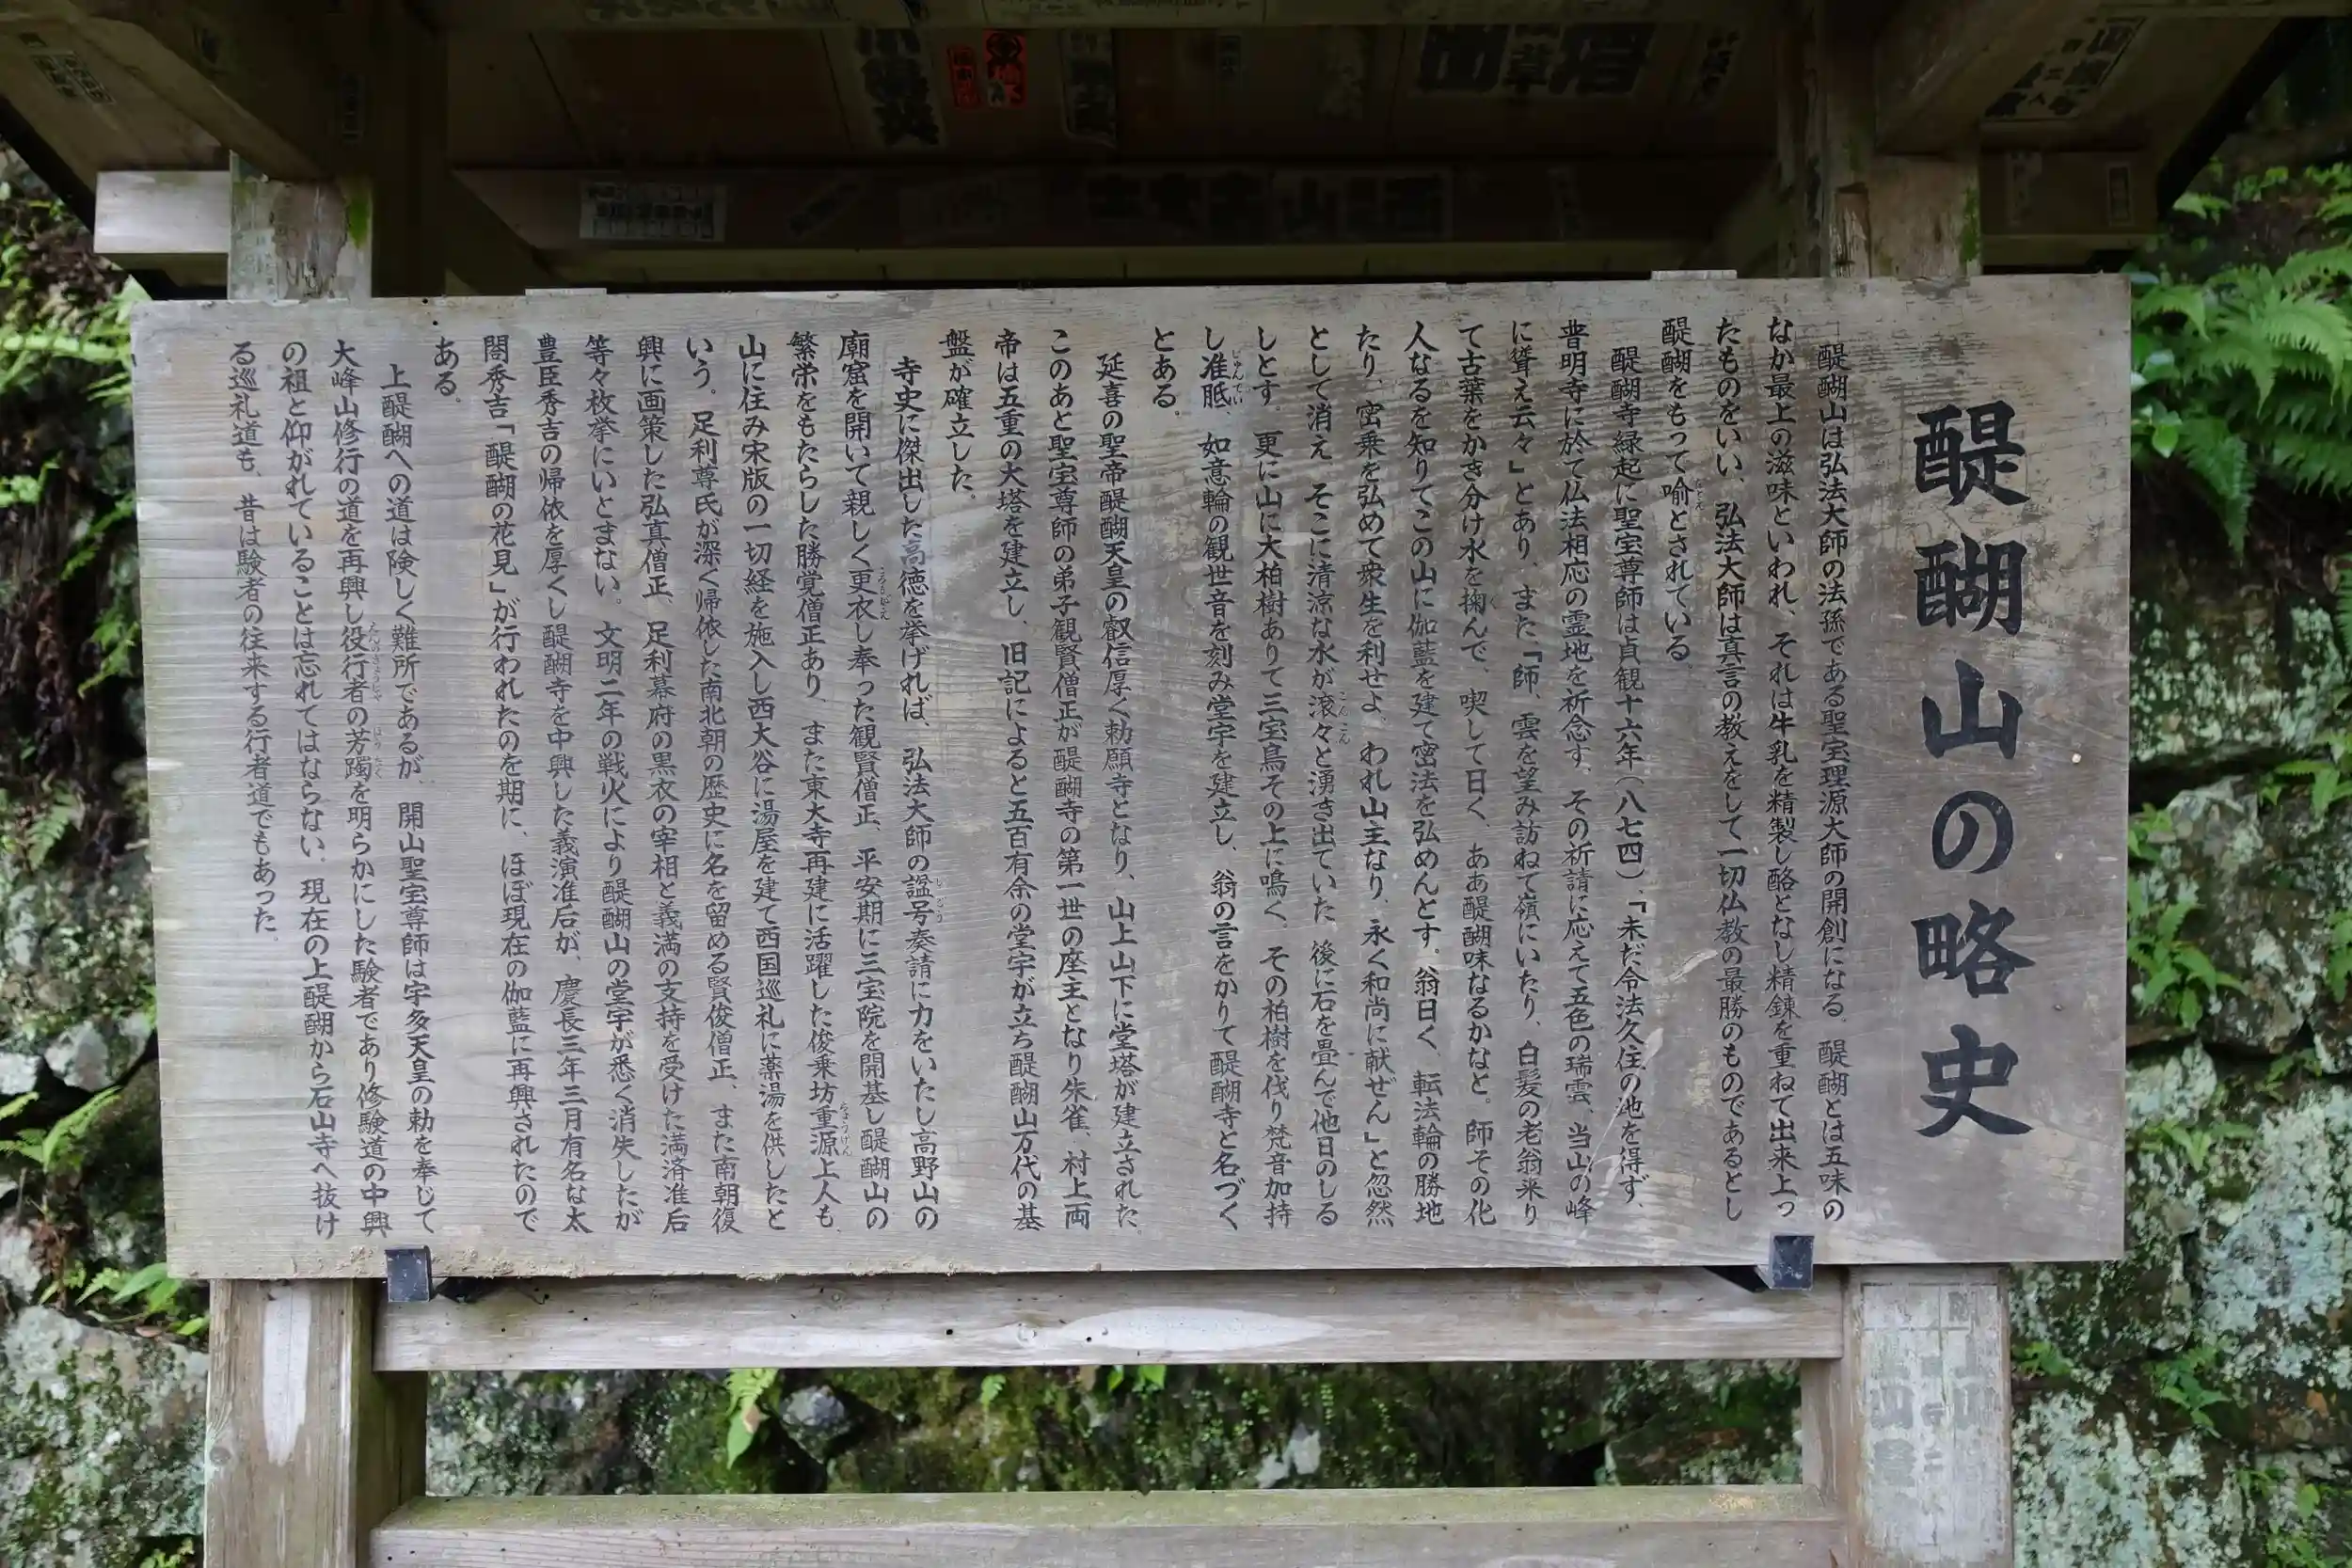 醍醐山の略史
醍醐山は弘法大師の法孫である聖宝理源大師の開創になる。醍醐とは五味の
なか最上の滋味といわれ、それは牛乳を精製し酪となし精錬を重ねて出来上っ
たものをいい、弘法大師は真言の教えをして一切仏教の最勝のものであるとし
醍醐をもって喩とされている。
醍醐寺縁起に聖宝尊師は貞観十六年(八七四)、「未だ令法久住の地を得ず、
普明寺に於て仏法相応の霊地を祈念す。その祈請に応えて五色の瑞雲、当山の峰
に聳え云々」とあり、また「師、雲を望み訪ねて嶺にいたり、白髪の老翁来り
て古葉をかき分け水を掬んで、喫して曰く、ああ醍醐味なるかなと。師その化
人なるを知りてこの山に伽藍を建て密法を弘めんとす。翁曰く、転法輪の勝地
たり、密乗を弘めて衆生を利せよ、われ山主なり、永く和尚に献ぜん」と忽然
として消え、そこに清涼な水が滾々と湧き出ていた。後に石を畳んで他日のしる
しとす。更に山に大柏樹ありて三宝鳥その上に鳴く、その柏樹を伐り梵音加持
し准胝、如意輪の観世音を刻み堂宇を建立し、翁の言をかりて醍醐寺と名づく
とある。
延喜の聖帝醍醐天皇の叡信厚く勅願寺となり、山上山下に堂塔が建立された。
このあと聖宝尊師の弟子観賢僧正が醍醐寺の第一世の座主となり朱雀、村上両
帝は五重の大塔を建立し、旧記によると五百有余の堂宇が立ち醍醐山万代の基
盤が確立した。
寺史に傑出した高徳を挙げれば、弘法大師の諡号奏請に力をいたし高野山の
廟窟を開いて親しく更衣し奉った観賢僧正、平安期に三宝院を開基し醍醐山の
繁栄をもたらした勝覚僧正あり、また東大寺再建に活躍した俊乗坊重源上人も、
山に住み宋版の一切経を施入し西大谷に湯屋を建て西国巡礼に薬湯を供したと
いう。足利尊氏が深く帰依した南北朝の歴史に名を留める賢俊僧正、また南朝復
興に画策した弘真僧正、足利幕府の黒衣の宰相と義満の支持を受けた満済准后
等々枚挙にいとまない。文明二年の戦火により醍醐山の堂宇が悉く消失したが
豊臣秀吉の帰依を厚くし醍醐寺を中興した義演准后が、慶長三年三月有名な太
閤秀吉「醍醐の花見」が行われたのを期に、ほぼ現在の伽藍に再興されたので
ある。
上醍醐への道は険しく難所であるが、開山聖宝尊師は宇多天皇の勅を奉じて
大峰山修行の道を再興し役行者の芳躅を明らかにした験者であり修験道の中興
の祖と仰がれていることは忘れてはならない。現在の上醍醐から石山寺へ抜け
る巡礼道も、昔は験者の往来する行者道でもあった。